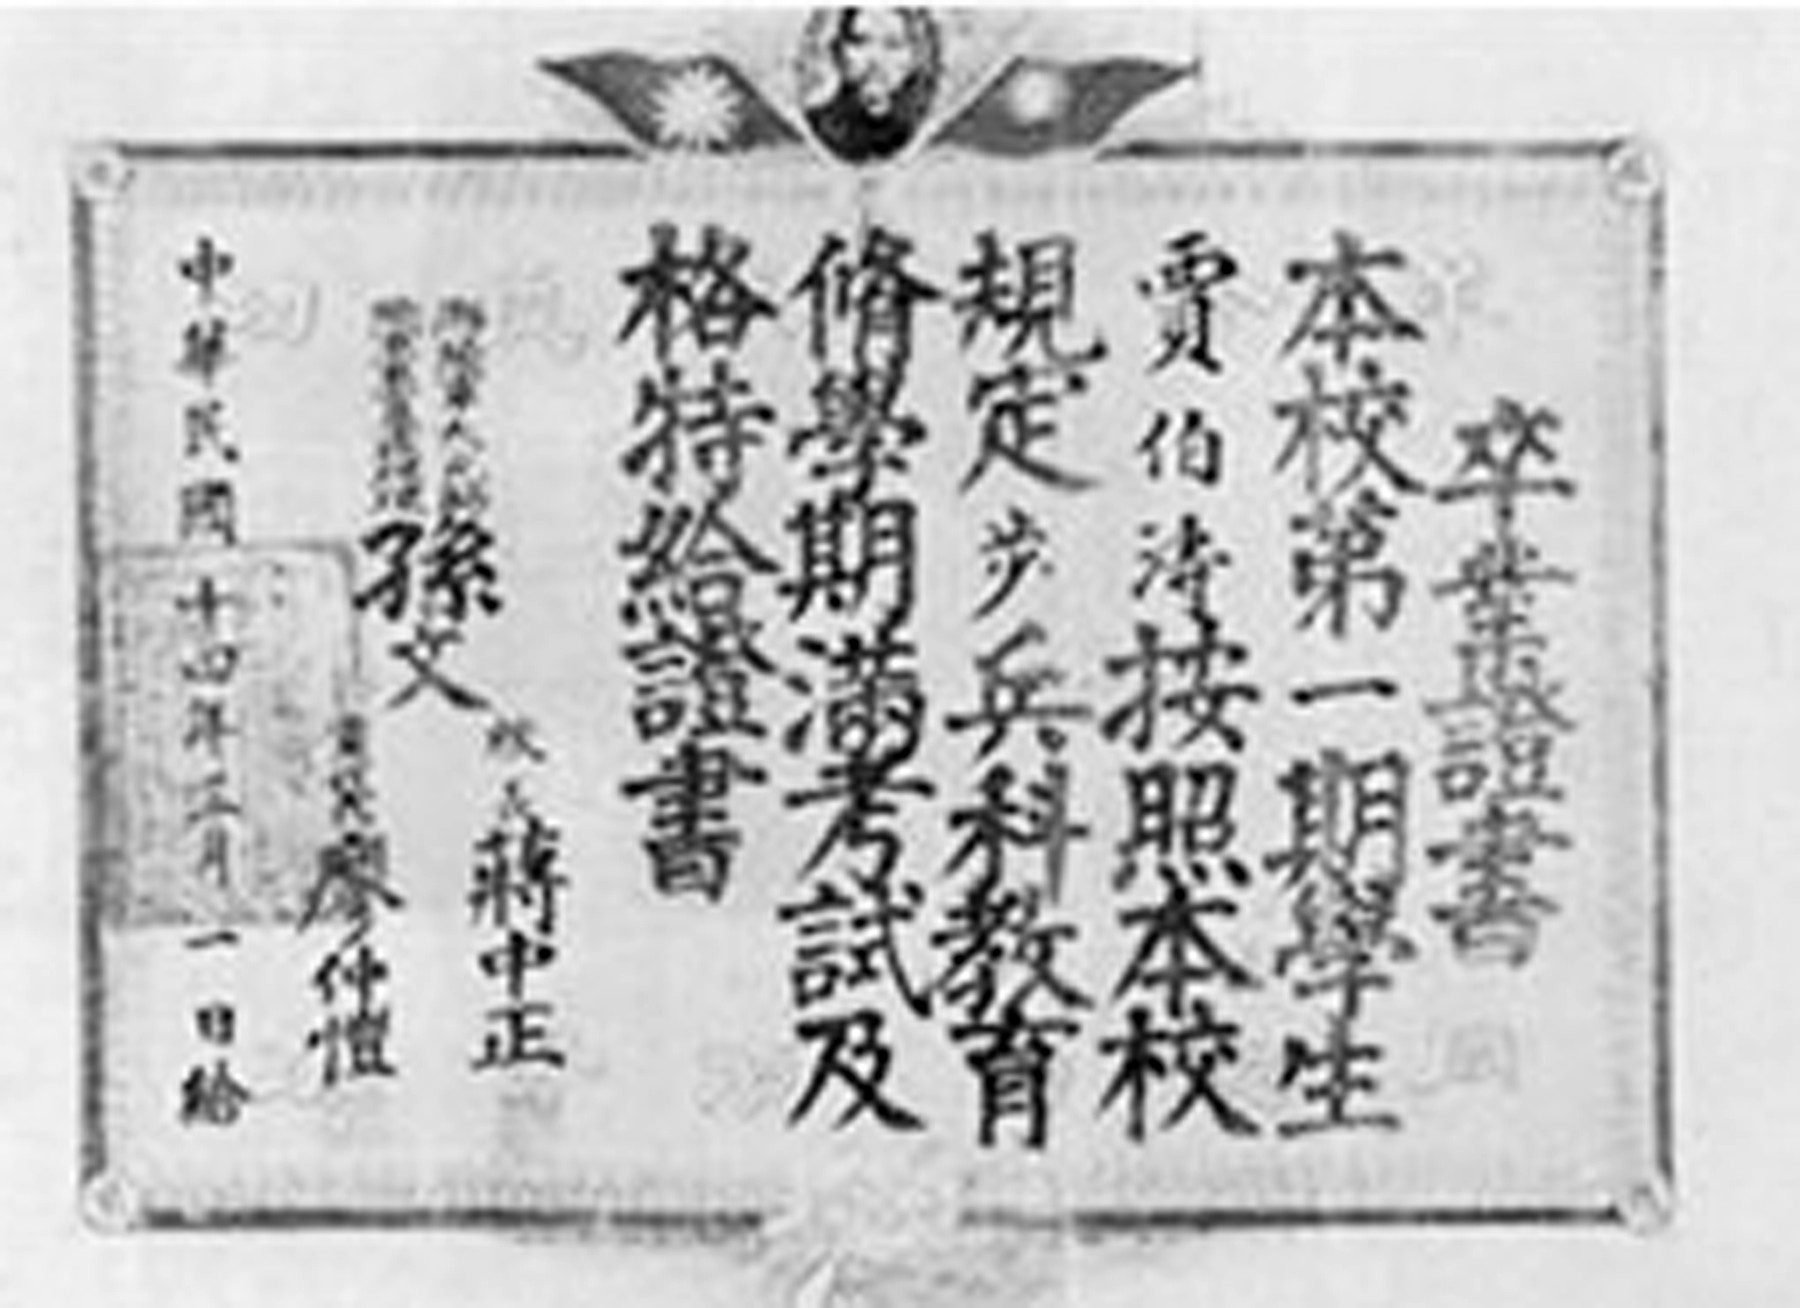 卒業證書
本校第一期學生
賈伯涛按照本校
規定步兵科教育
脩學期滿考試及
格特給證書
海陸軍大元帥
孫文
校長蔣中正
黨代表廖仲愷
中華民國十四年三月一日給